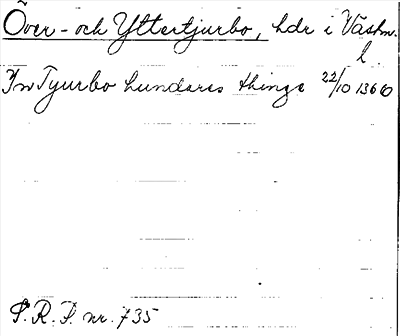 Över- och Yttertjurbo, hdr i Västm.
l.
J/w Tyurbo hundares things 22/10 1366
S.R.P. nr. 735